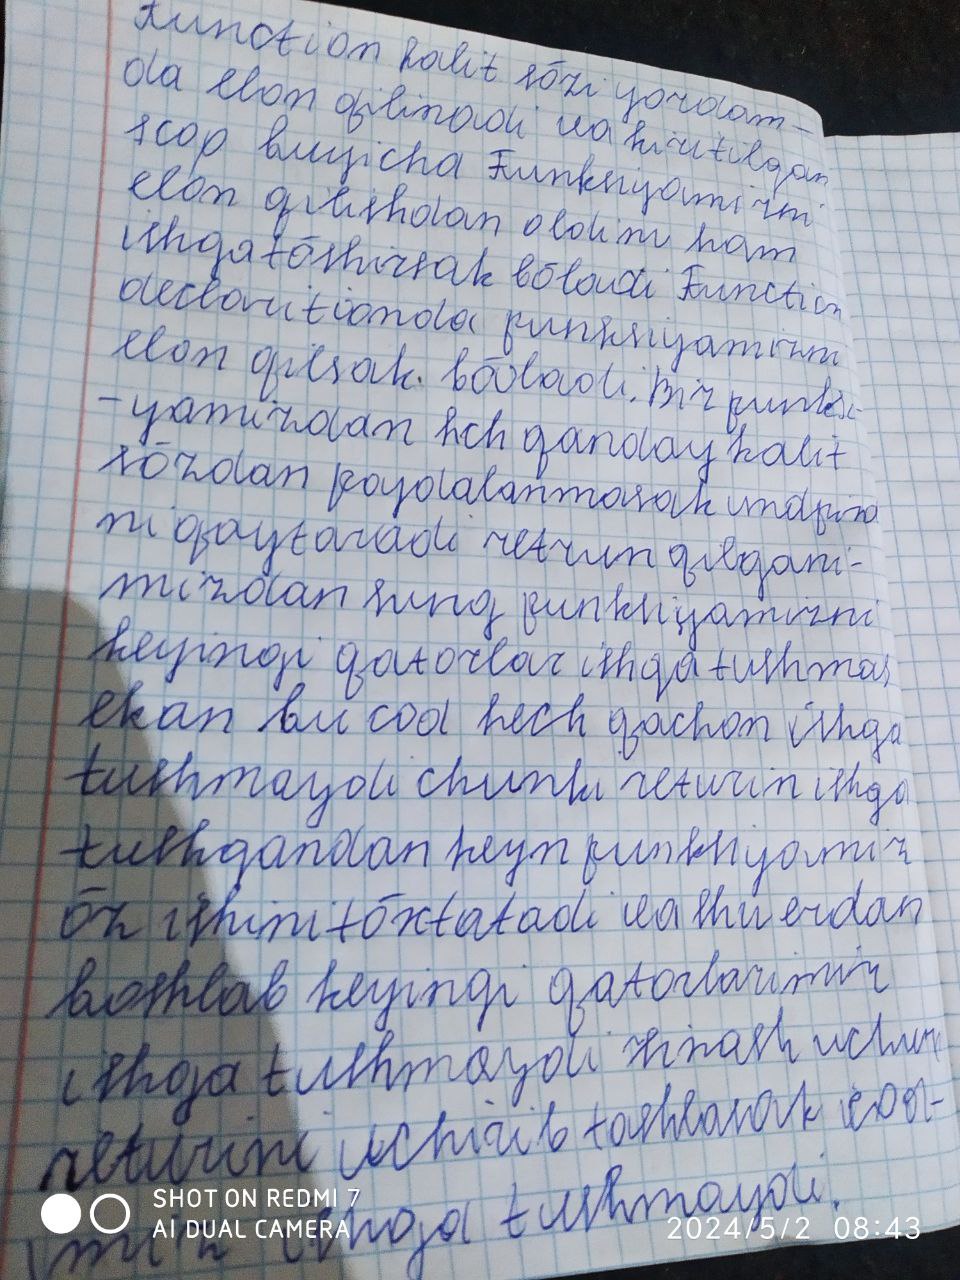 Function kalit sōzi yordam-
da elon qilinadi va kiritilgan
scop buyicha Funksiyamizni
elon qilishdan oldini ham
ishga tōshirsak bōladi Function
declaritionda funksiyamizni
elon qilsak. bōladi. Biz funksi-
-yamizdan hch qanday kalit
sōzdan foydalanmasak
ni qaytaradi retrun qilgani-
mizdan sung funksiyamizni
keyingi qatorlar ishga tushmas
ekan bu cod hech qachon ishga
tushmaydi chunki returin ishga
tushgandan keyn funksiyamiz
ōz ishini tōxtatadi va shu erdan
boshlab keyingi qatorlarimiz
ishga tushmaydi sinash uchun
returini uchirib tashlasak
ishga tushmaydi.
SHOT ON REDMI 7
AI DUAL CAMERA
2024/5/2 08:43